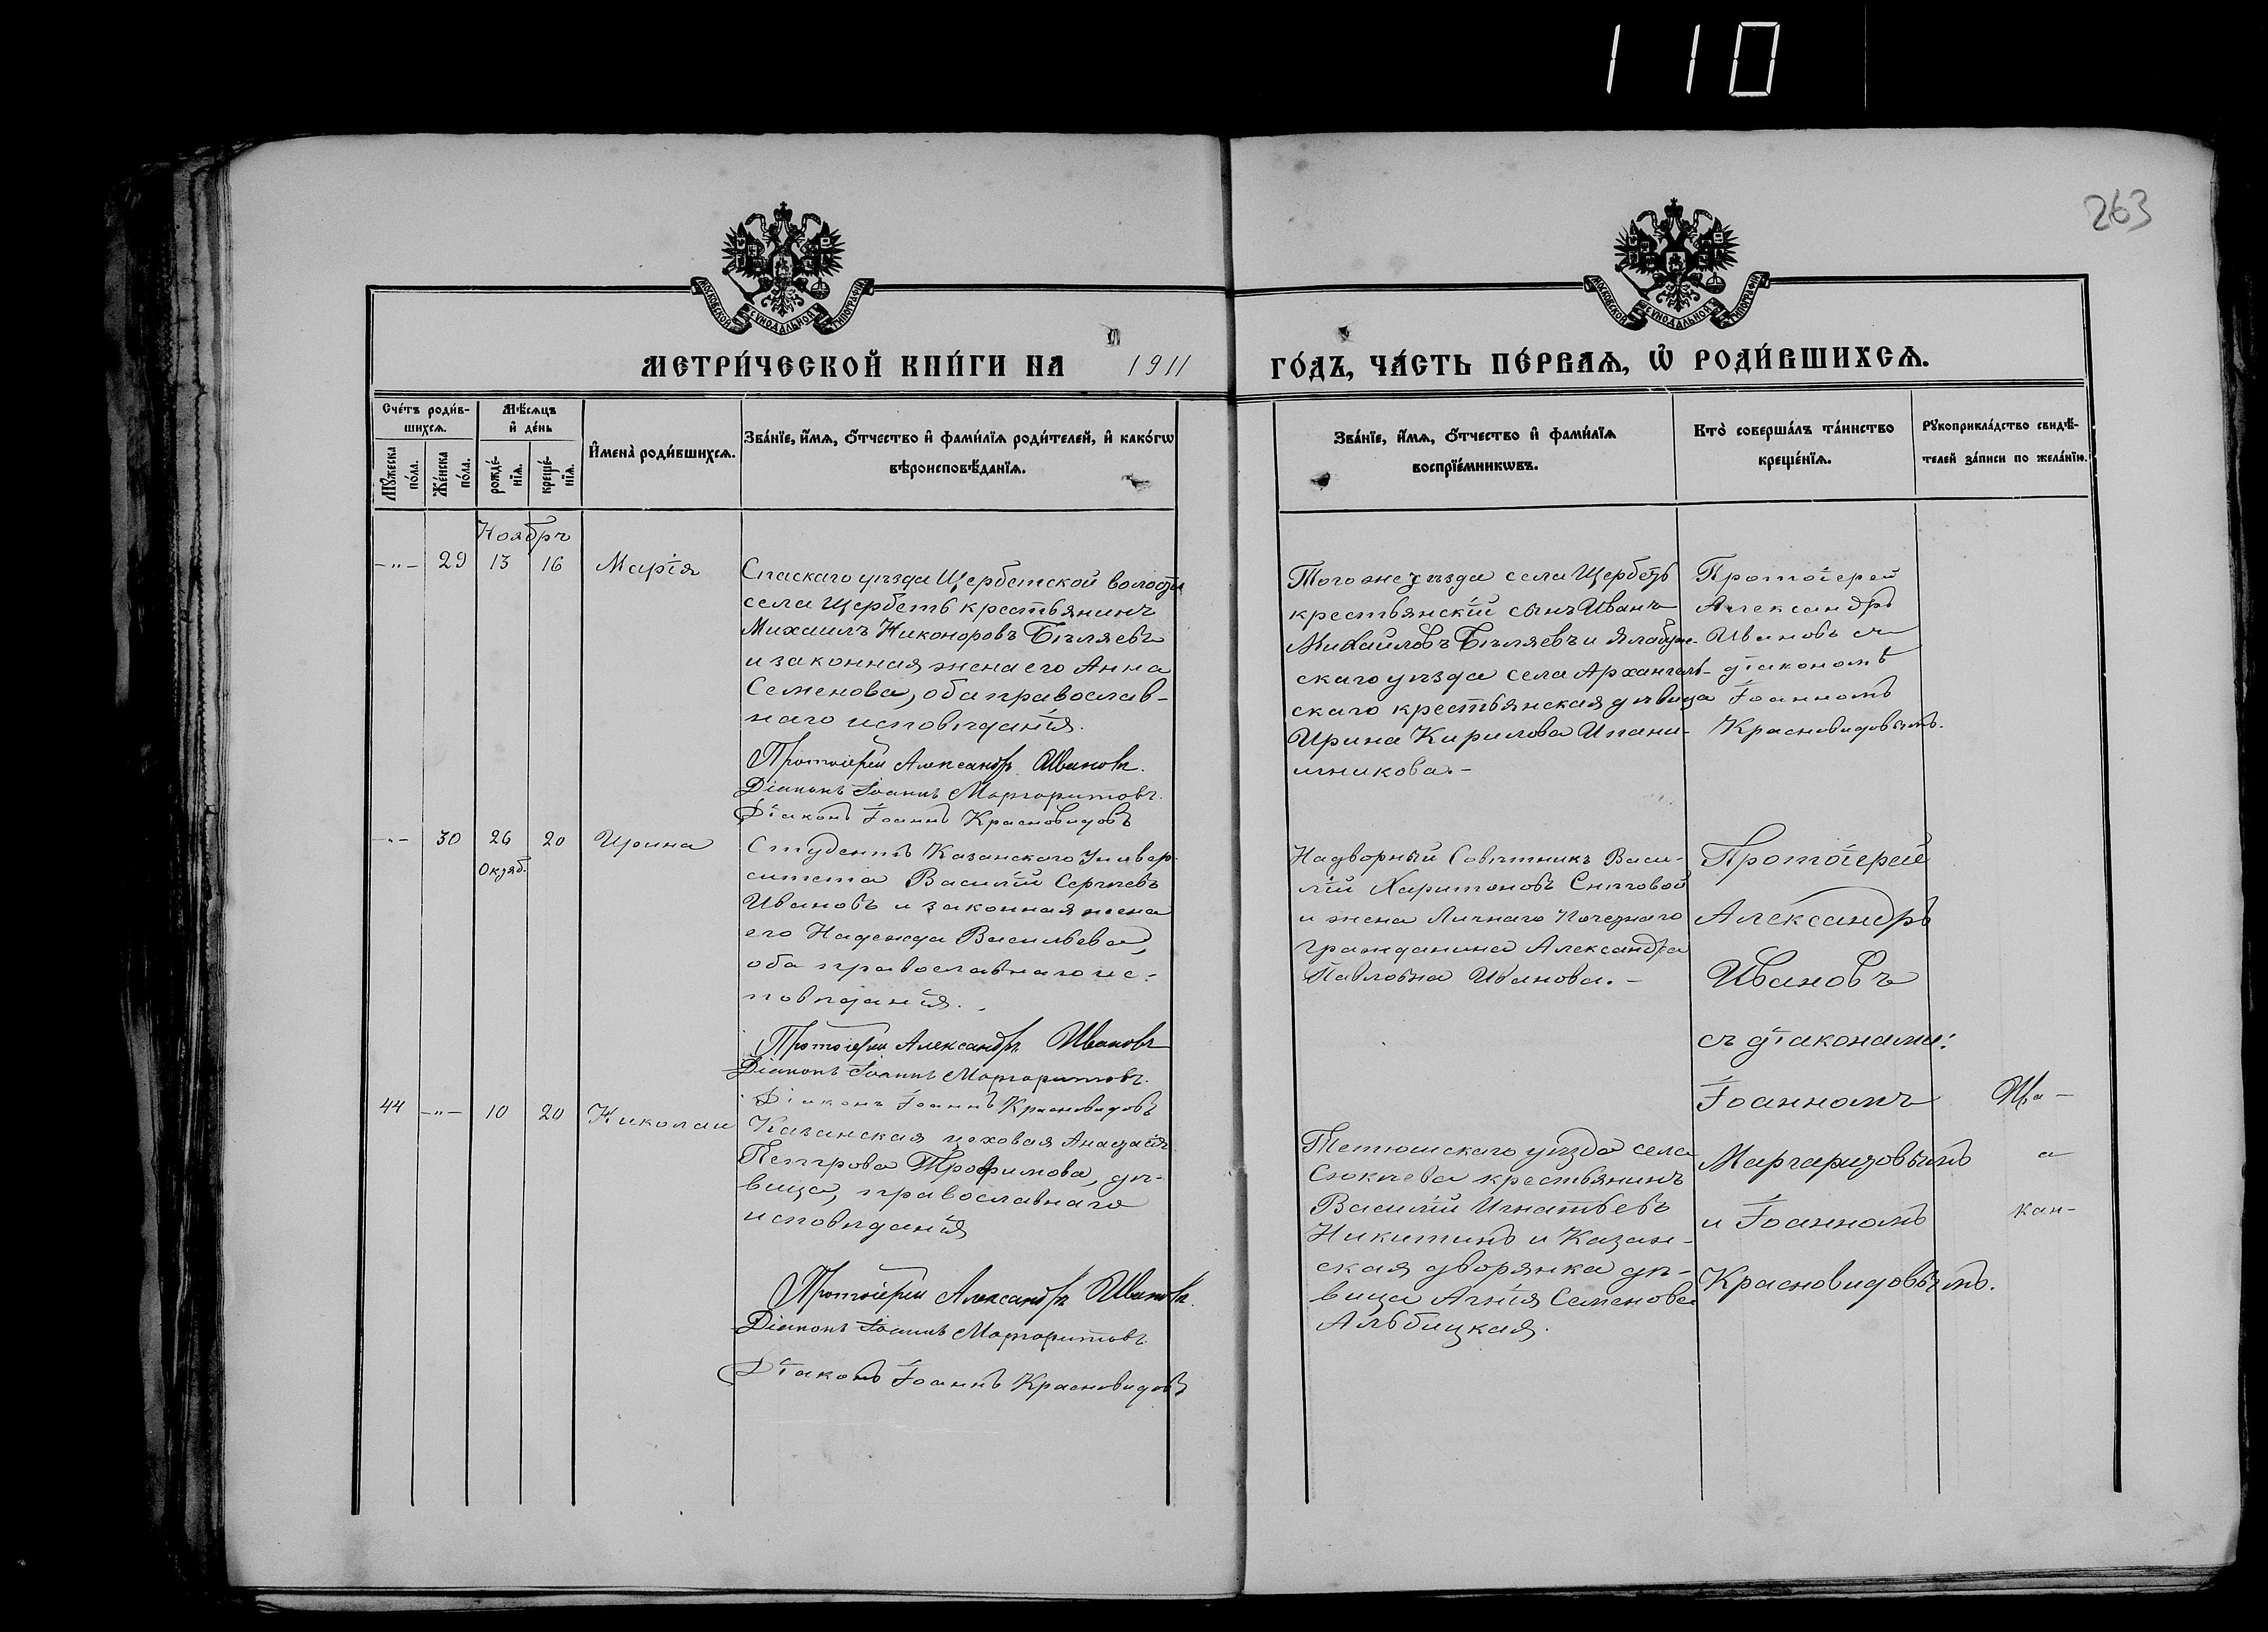 110
263
МОСКОВСКОЙ СѴНОДАЛЬНОЙ ТИПОГРАФІИ
МОСКОВСКОЙ СѴНОДАЛЬНОЙ ТИПОГРАФІИ
МЕТРИ́ЧЕСКОЙ КНИ́ГИ НА 1911 ГО́ДЪ, ЧА́СТЬ ПЕ́РВАѦ, Ѡ҆ РОДИ́ВШИХСѦ.
Сче́тъ роди́в-
шихсѧ.
Мꙋ́жеска
по́ла.
Же́нска
по́ла.
Мѣ́сѧцъ
и҆ де́нь
рожде́-
нїѧ.
креще́-
нїѧ.
И҆мена̀ роди́вшихсѧ.
Зва́нїе, и҆́мѧ, ѻ҆́тчество и҆ фами́лїѧ роди́телей, и҆ како́гѡ
вѣроисповѣ́данїѧ.
Зва́нїе, и҆́мѧ, ѻ҆́тчество и҆ фами́лїѧ
воспрїе́мникѡвъ.
Кто̀ соверша́лъ та́инство
креще́нїѧ.
Рꙋкоприкла́дство свидѣ́-
телей за́писи по жела́нїю.
Ноябрь
-"- 29 13 16 Марія
Спаскаго уѣзда Щербетской волости
села Щербеть крестьянинъ
Михаилъ Никоноровъ Бѣляевъ
и законная жена его Анна
Семенова, оба православ-
наго исповѣданія.
Протоіерей Александръ Ивановъ.
Діаконъ Іоаннъ Маргаритовъ.
Діаконъ Іоаннъ Красновидовъ
Того же уѣзда села Щербеть
крестьянскій сынъ Иванъ
Михайловъ Бѣляевъ и Елабуж-
скаго уѣзда села Архангель-
скаго крестьянская дѣвица
Ирина Кирилова
Протоіерей
Александръ
Ивановъ съ
діакономъ
Іоанномъ
Красновидовымъ.
-"- 30 26 20 Ирина
Октяб.
Студентъ Казанскаго Универ-
ситета Василій Сергѣевъ
Ивановъ и законная жена
его Надежда Васильева,
оба православнаго ис-
повѣданія.
Протоіерей Александръ Ивановъ
Діаконъ Іоаннъ Маргаритовъ.
Діаконъ Іоаннъ Красновидовъ
Надворный Совѣтникъ Васи-
лій Харитоновъ Снѣговой
и жена Личнаго Почетнаго
гражданина Александра
Павловна Иванова.-
Протоіерей
Александръ
Ивановъ
съ діаконами:
Іоанномъ
Маргаритовымъ
и Іоанномъ
Красновидовымъ.
44 -"- 10 20 Николай
Казанская цеховая Анастасія
Петрова Трофимова, дѣ-
вица, православнаго
исповѣданія
Протоіерей Александръ Ивановъ.
Діаконъ Іоаннъ Маргаритовъ.
Діаконъ Іоаннъ Красновидовъ
Тетюшскаго уѣзда села
Сюкѣева крестьянинъ
Василій Игнатьевъ
Никитинъ и Казан-
ская дворянка дѣ-
вица Агнія Семенова
Альбицкая.
а
кан-